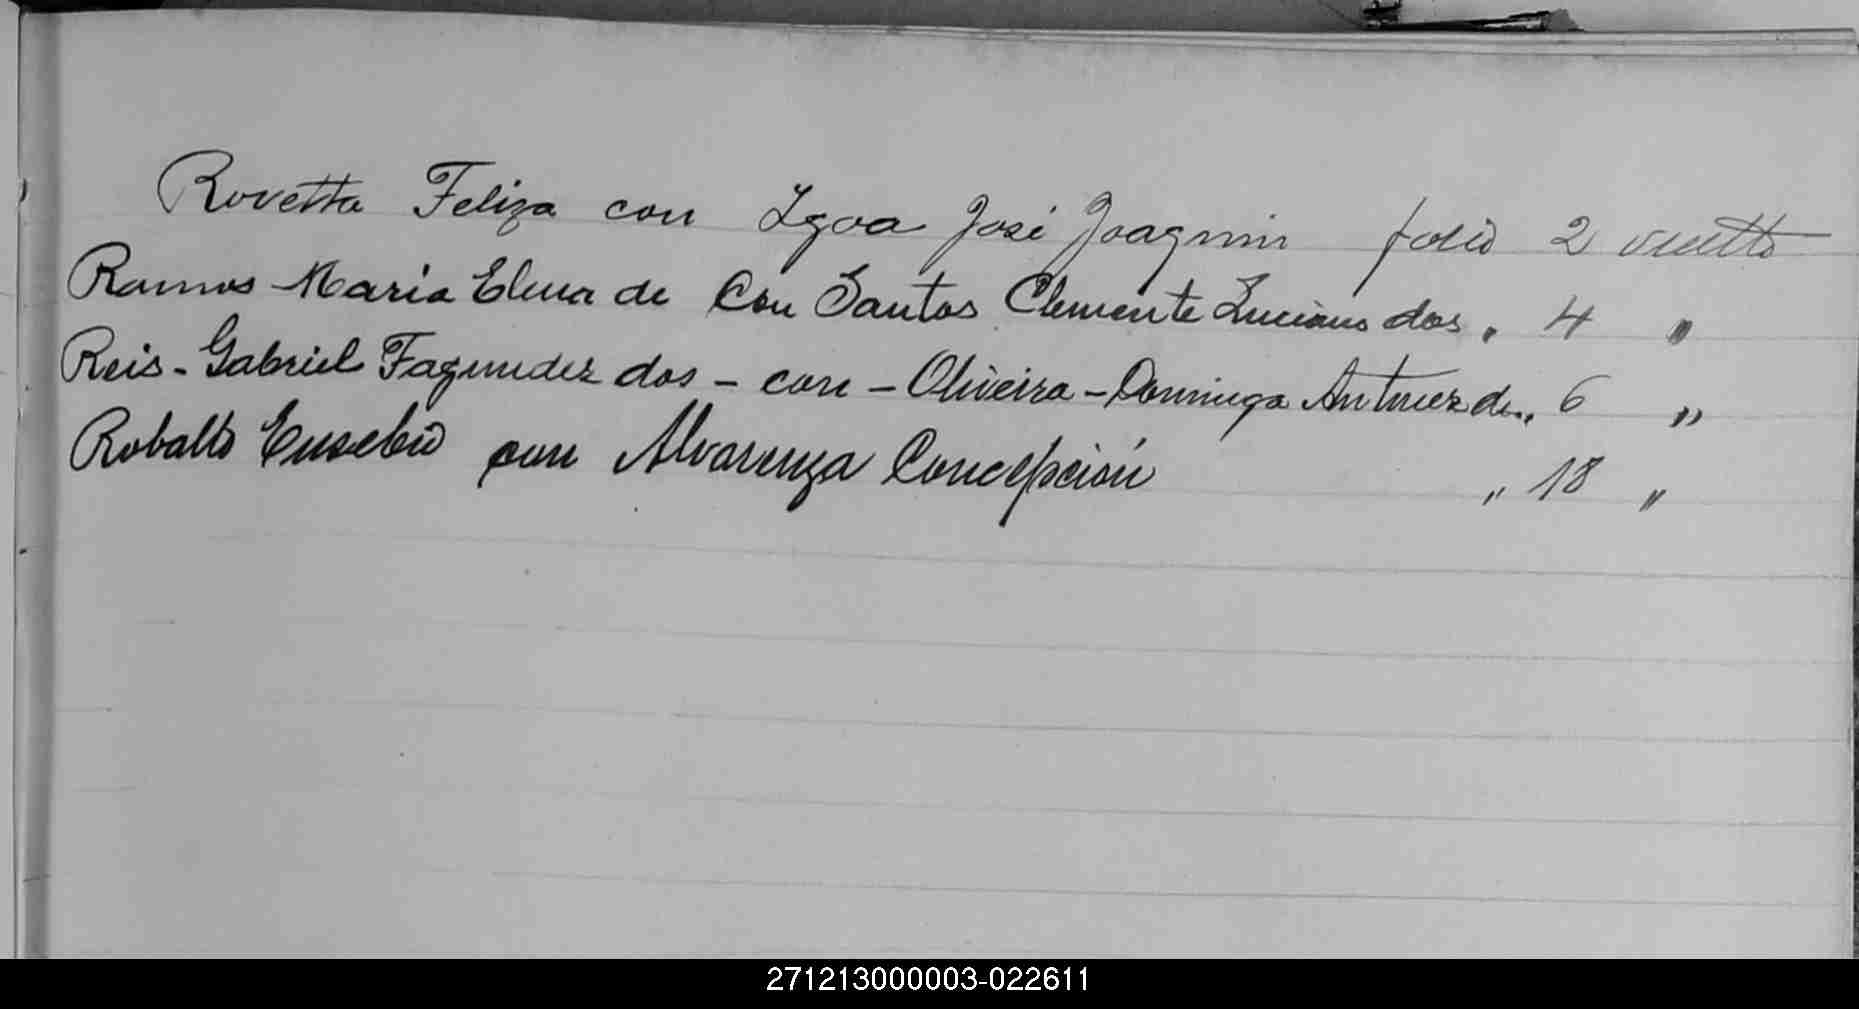 Rovetta Feliza con Ygoa José Joaquin folio 2 vuelto
Ramos Maria Elena de con Santos Clemente Luciano dos " 4 "
Reis - Gabriel Fagundez dos - con - Oliveira - Dominga Antunez de " 6 "
Robatto Eusebio con Alvarenza Concepción " 18 "
271213000003-022611